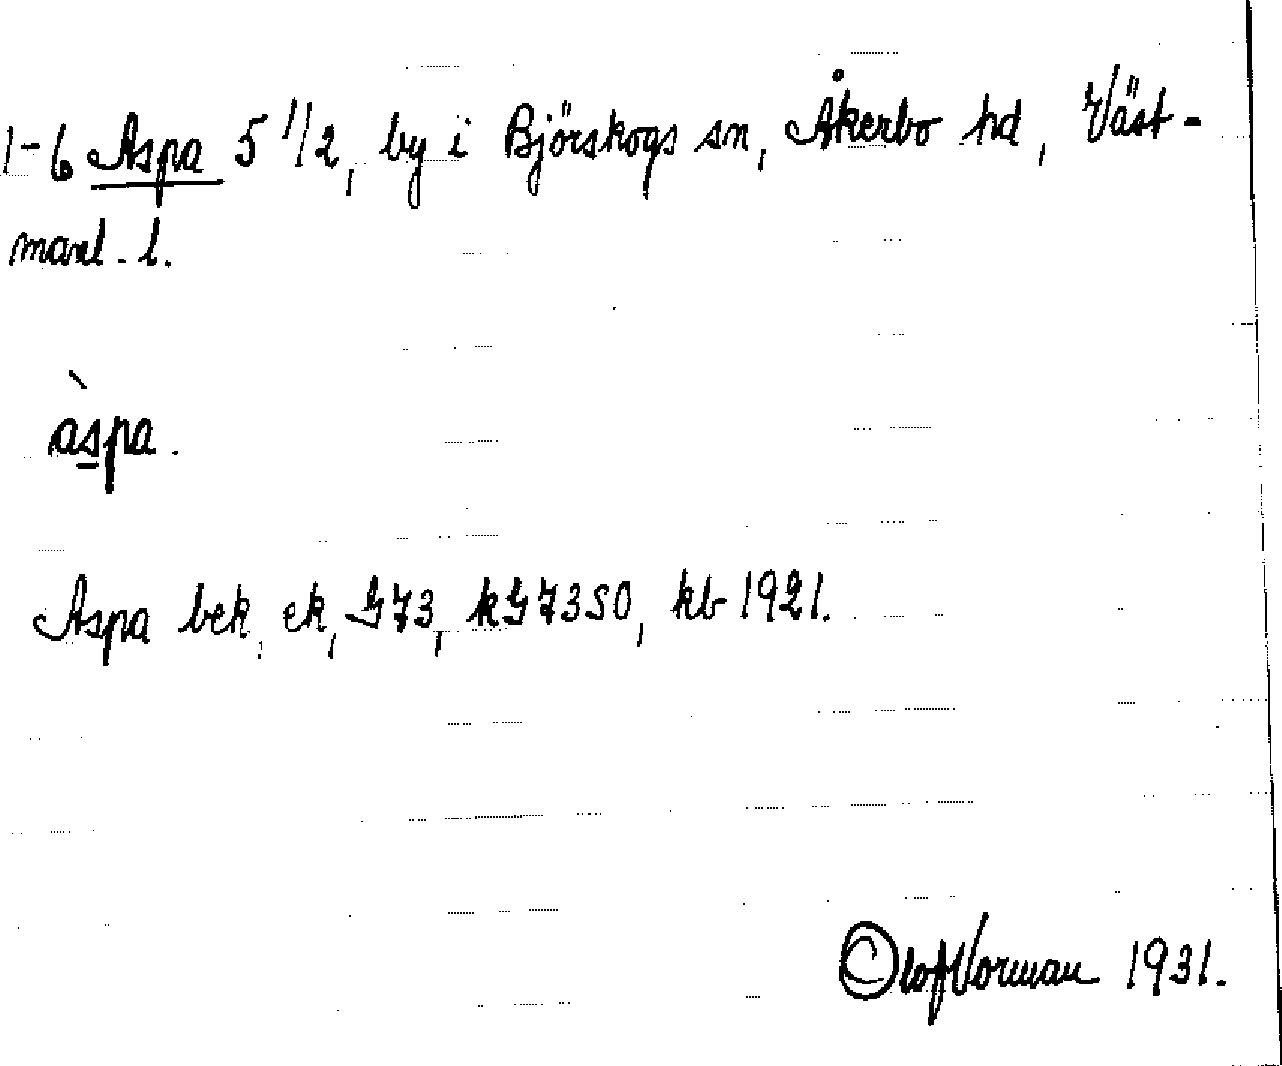 1-6 Aspa 5 1/2, by i Björskogs sn, Åkerbo hd, Väst-
manl. l.
àspa.
Aspa bek, ek, G73, kG7350, kb 1921.
Olof Vorman 1931.